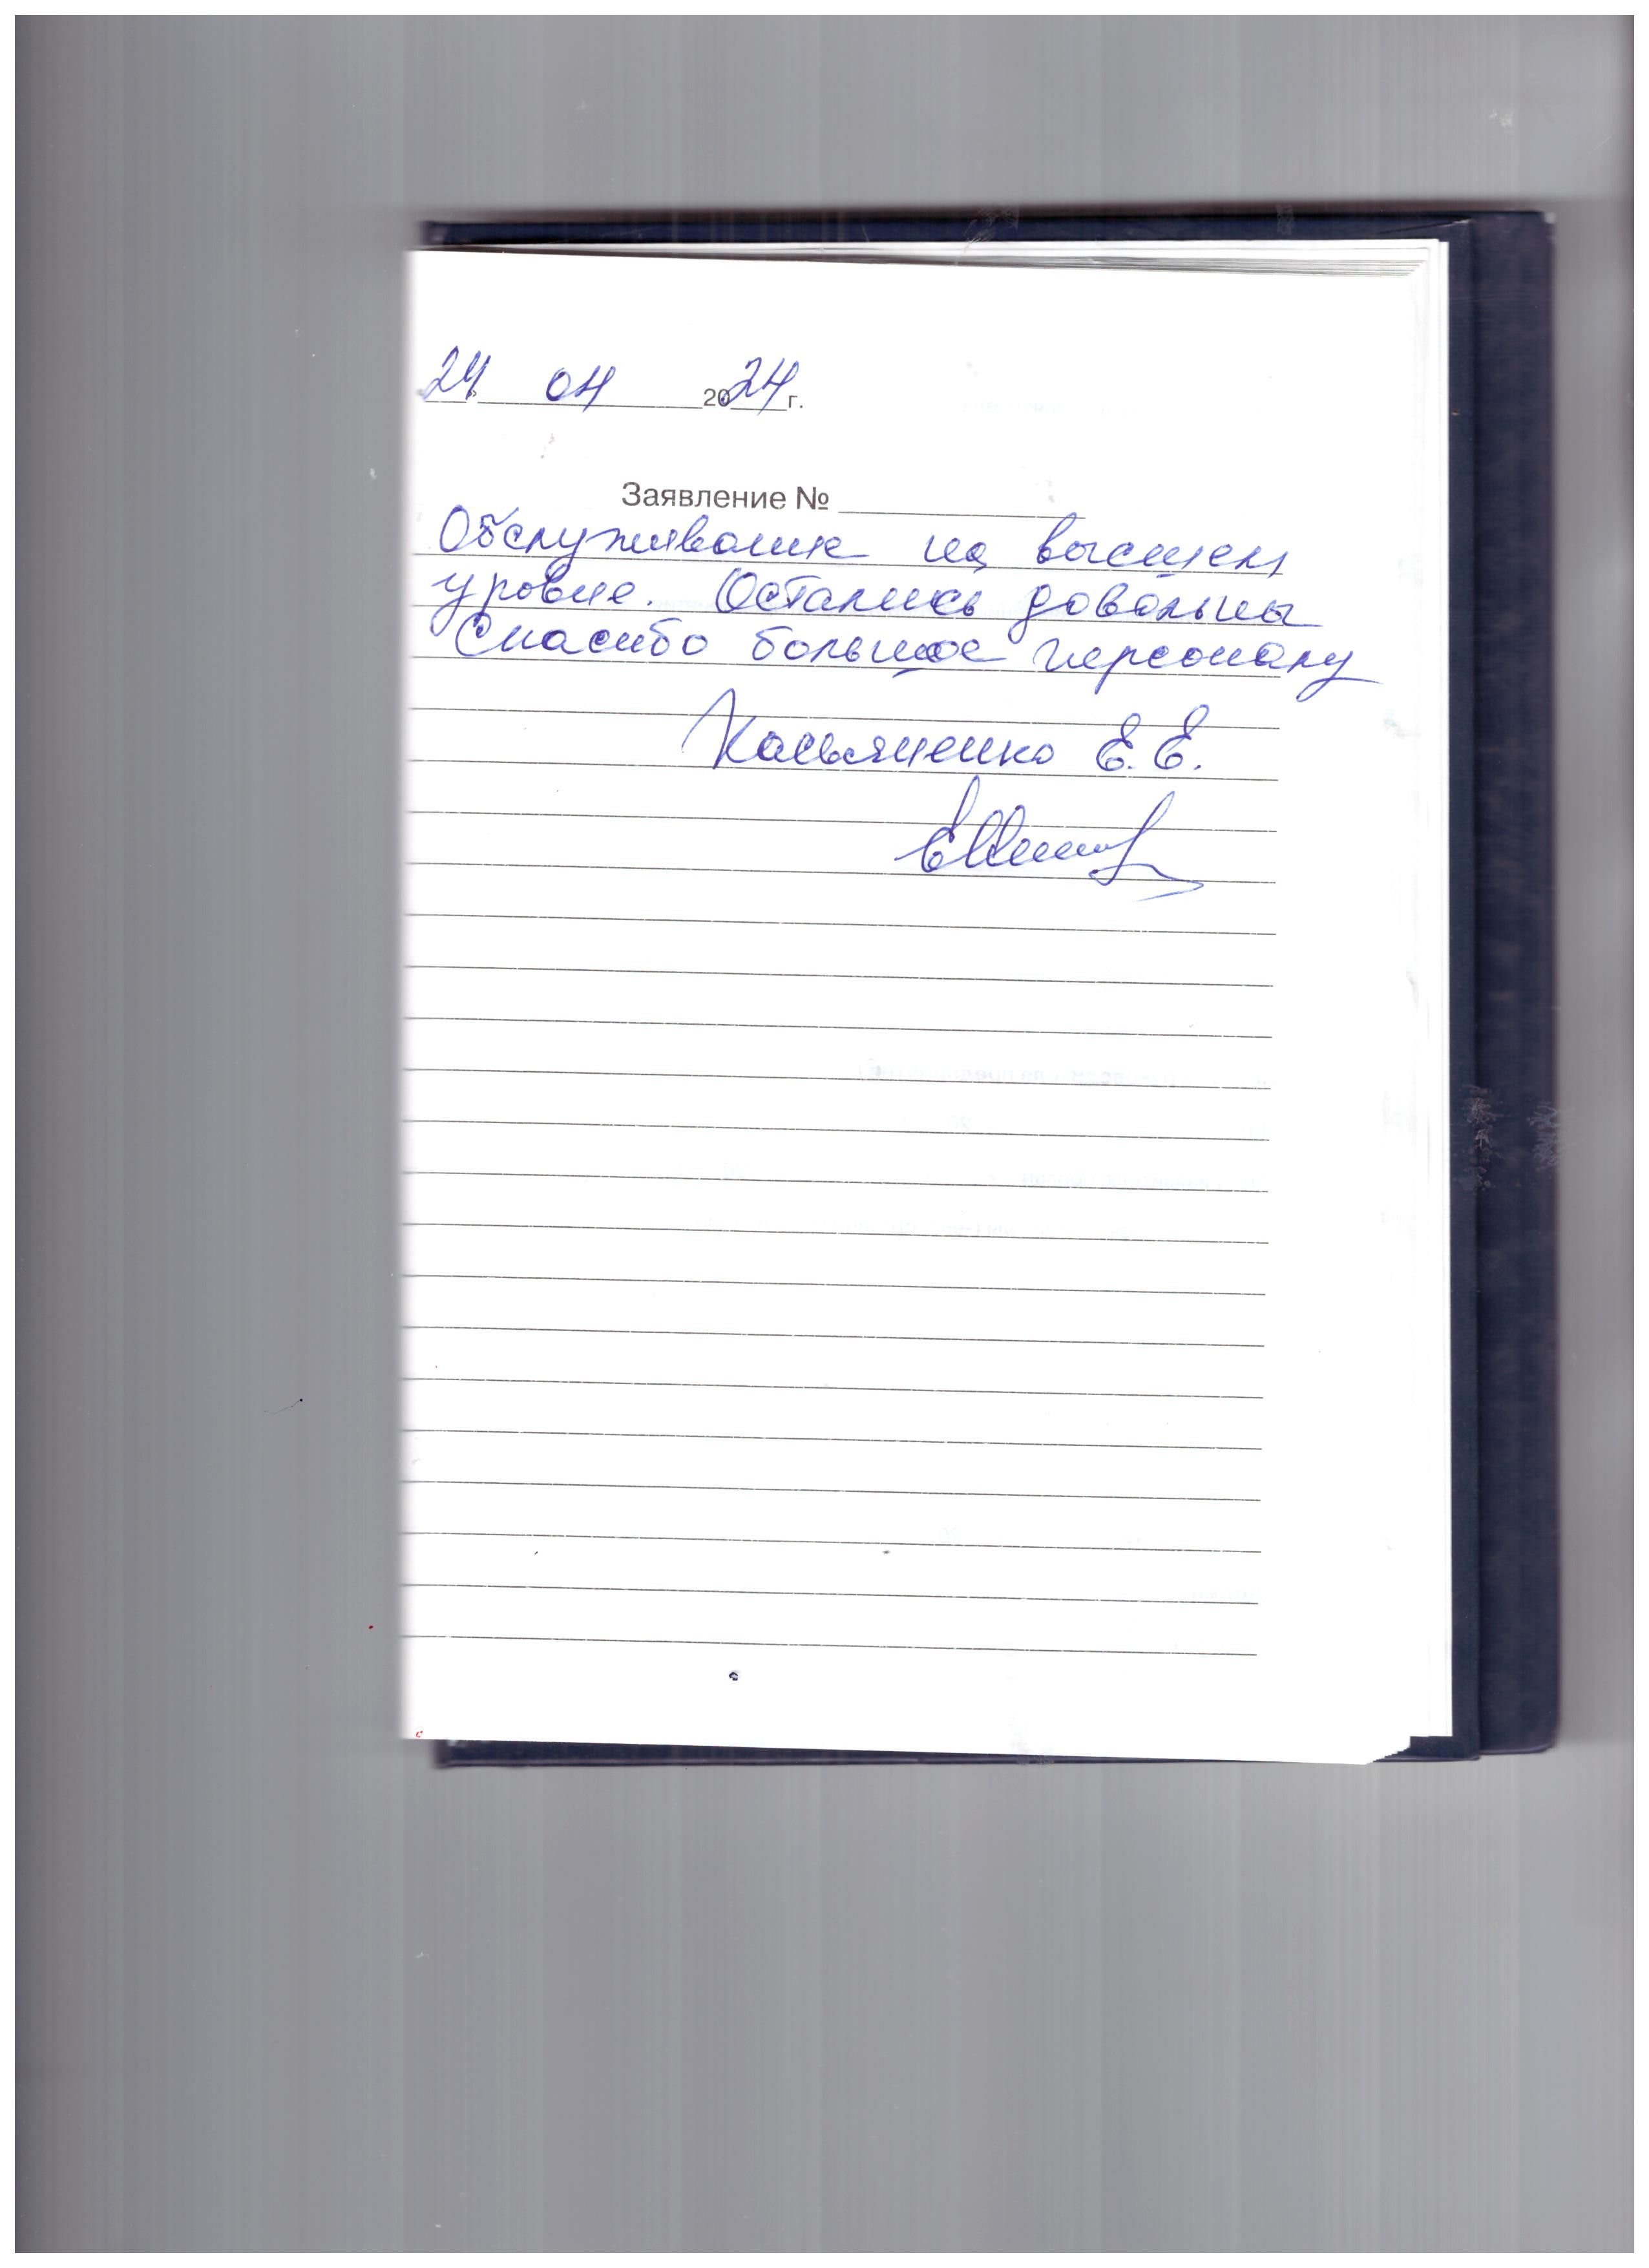 24 04 2024г.
Заявление №
Обслуживание на высшем
уровне. Остались довольны
Спасибо большое персоналу
Касьяненко Е.Е.